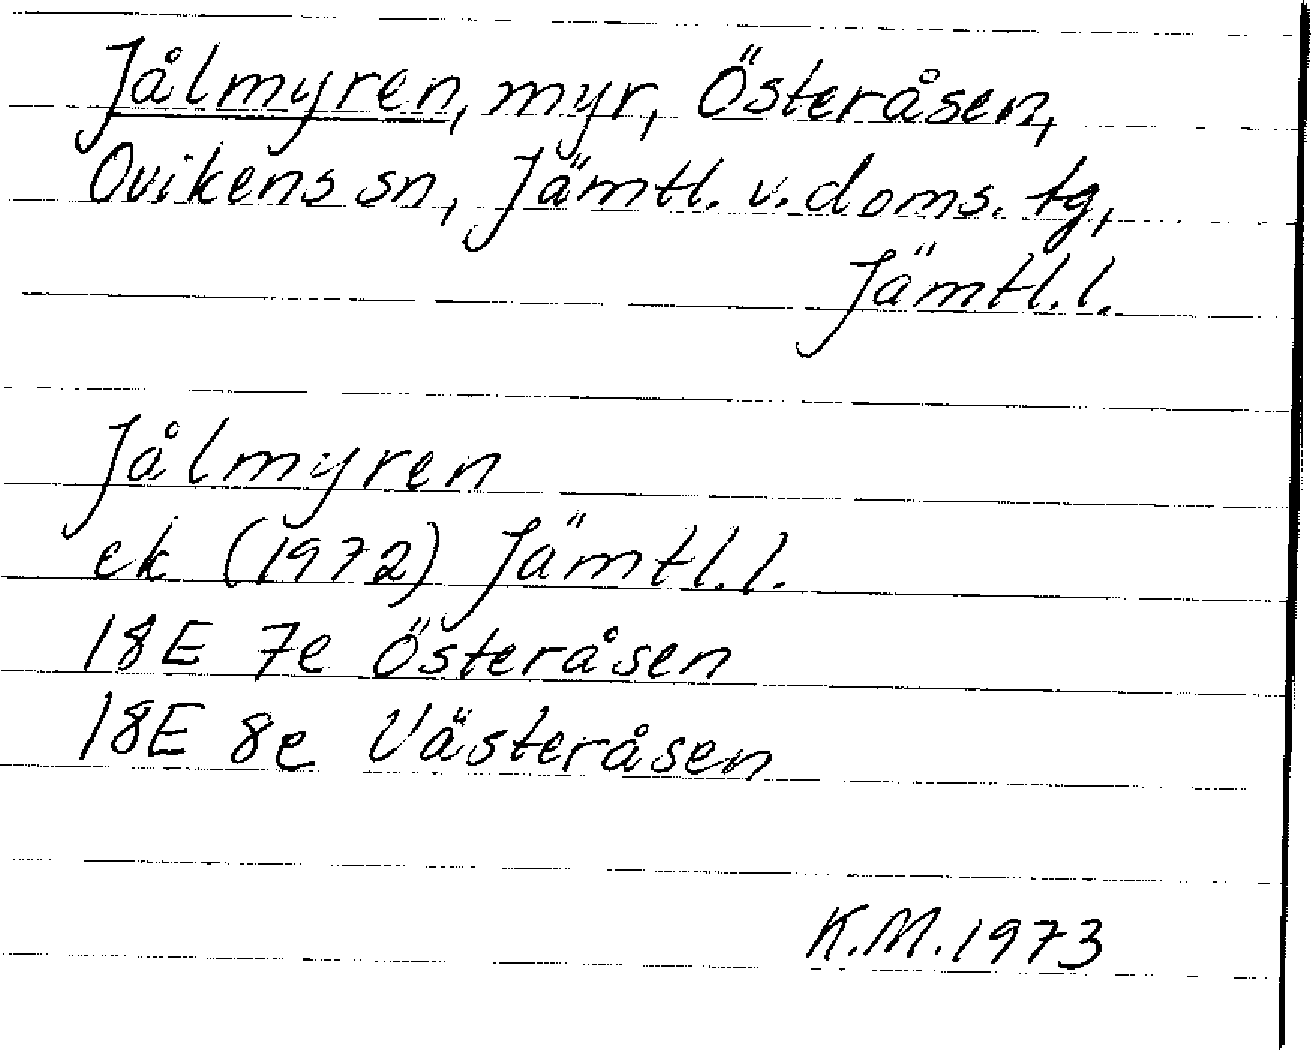 Jålmyren, myr, Österåsen,
Ovikens sn, Jämtl. v. doms. tg,
Jämtl. l.
Jålmyren
ek (1972) Jämtl. l.
18E 7e Österåsen
18E 8e Västeråsen
K.M. 1973